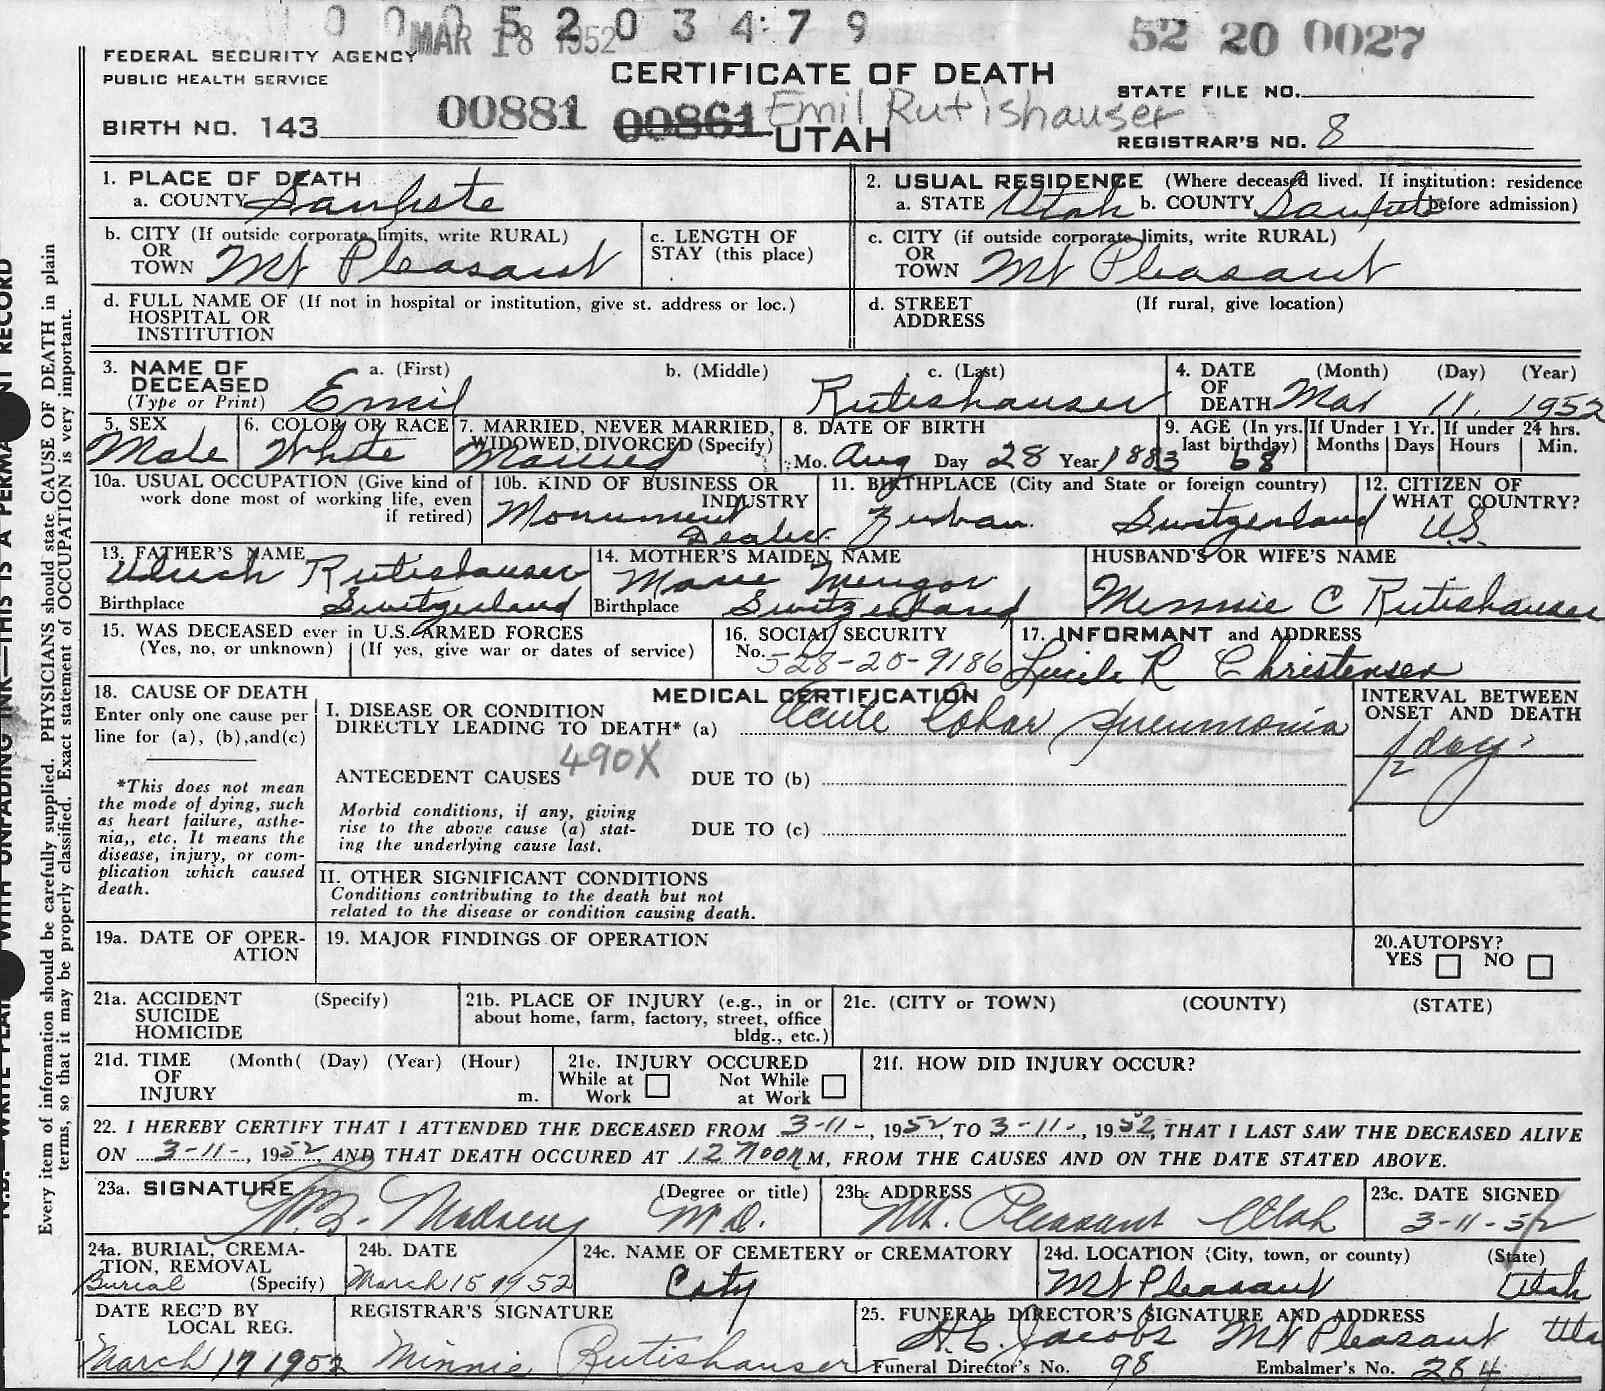 0 0 0 5 2 0 3 4 7 9
MAR 18 1952
52 20 0027
FEDERAL SECURITY AGENCY
PUBLIC HEALTH SERVICE
CERTIFICATE OF DEATH
STATE FILE NO.
BIRTH NO. 143
00881 00861 Emil Rutishauser
UTAH
REGISTRAR'S NO. 8
1. PLACE OF DEATH
a. COUNTY Sanpete
2. USUAL RESIDENCE (Where deceased lived. If institution: residence
a. STATE Utah b. COUNTY Sanpete before admission)
b. CITY (If outside corporate limits, write RURAL)
OR
TOWN Mt Pleasant
c. LENGTH OF
STAY (this place)
c. CITY (if outside corporate limits, write RURAL)
OR
TOWN Mt Pleasant
d. FULL NAME OF (If not in hospital or institution, give st. address or loc.)
HOSPITAL OR
INSTITUTION
d. STREET (If rural, give location)
ADDRESS
3. NAME OF
DECEASED
(Type or Print)
a. (First) b. (Middle) c. (Last)
Emil Rutishauser
4. DATE (Month) (Day) (Year)
OF
DEATH Mar 11, 1952
5. SEX
Male
6. COLOR OR RACE
White
7. MARRIED, NEVER MARRIED,
WIDOWED, DIVORCED (Specify)
Married
8. DATE OF BIRTH
Mo. Aug Day 28 Year 1883
9. AGE (In yrs.
last birthday)
68
If Under 1 Yr.
Months Days
If under 24 hrs.
Hours Min.
10a. USUAL OCCUPATION (Give kind of
work done most of working life, even
if retired)
10b. KIND OF BUSINESS OR
INDUSTRY
Monument
Dealer
11. BIRTHPLACE (City and State or foreign country)
Switzerland
12. CITIZEN OF
WHAT COUNTRY?
U.S.
13. FATHER'S NAME
Ulrich Rutishauser
Birthplace Switzerland
14. MOTHER'S MAIDEN NAME
Marie
Birthplace Switzerland
HUSBAND'S OR WIFE'S NAME
Minnie C Rutishauser
15. WAS DECEASED ever in U.S. ARMED FORCES
(Yes, no, or unknown) (If yes, give war or dates of service)
16. SOCIAL SECURITY
No. 528-20-9186
17. INFORMANT and ADDRESS
Lucile R Christensen
18. CAUSE OF DEATH
Enter only one cause per
line for (a), (b), and (c)
*This does not mean
the mode of dying, such
as heart failure, asthe-
nia,, etc. It means the
disease, injury, or com-
plication which caused
death.
MEDICAL CERTIFICATION
I. DISEASE OR CONDITION
DIRECTLY LEADING TO DEATH* (a) Acute Lobar Pneumonia
490X
ANTECEDENT CAUSES DUE TO (b)
Morbid conditions, if any, giving
rise to the above cause (a) stat-
ing the underlying cause last.
DUE TO (c)
INTERVAL BETWEEN
ONSET AND DEATH
1/2 day
II. OTHER SIGNIFICANT CONDITIONS
Conditions contributing to the death but not
related to the disease or condition causing death.
19a. DATE OF OPER-
ATION
19. MAJOR FINDINGS OF OPERATION
20. AUTOPSY?
YES NO
21a. ACCIDENT (Specify)
SUICIDE
HOMICIDE
21b. PLACE OF INJURY (e.g., in or
about home, farm, factory, street, office
bldg., etc.)
21c. (CITY or TOWN) (COUNTY) (STATE)
21d. TIME (Month( (Day) (Year) (Hour)
OF
INJURY m.
21e. INJURY OCCURED
While at Work Not While at Work
21f. HOW DID INJURY OCCUR?
22. I HEREBY CERTIFY THAT I ATTENDED THE DECEASED FROM 3-11-, 1952, TO 3-11-, 1952, THAT I LAST SAW THE DECEASED ALIVE
ON 3-11-, 1952 AND THAT DEATH OCCURED AT 12 noon M, FROM THE CAUSES AND ON THE DATE STATED ABOVE.
23a. SIGNATURE (Degree or title)
Madsen M.D.
23b. ADDRESS
Mt. Pleasant Utah
23c. DATE SIGNED
3-11-52
24a. BURIAL, CREMA-
TION, REMOVAL
Burial (Specify)
24b. DATE
March 15 1952
24c. NAME OF CEMETERY or CREMATORY
City
24d. LOCATION (City, town, or county) (State)
Mt Pleasant Utah
DATE REC'D BY
LOCAL REG.
March 17 1952
REGISTRAR'S SIGNATURE
Minnie Rutishauser
25. FUNERAL DIRECTOR'S SIGNATURE AND ADDRESS
Jacobs Mt Pleasant Uta
Funeral Director's No. 98 Embalmer's No. 284
Every item of information should be carefully supplied. PHYSICIANS should state CAUSE OF DEATH in plain
terms, so that it may be properly classified. Exact statement of OCCUPATION is very important.
WITH UNFADING INK—THIS IS A PERMA NT RECORD